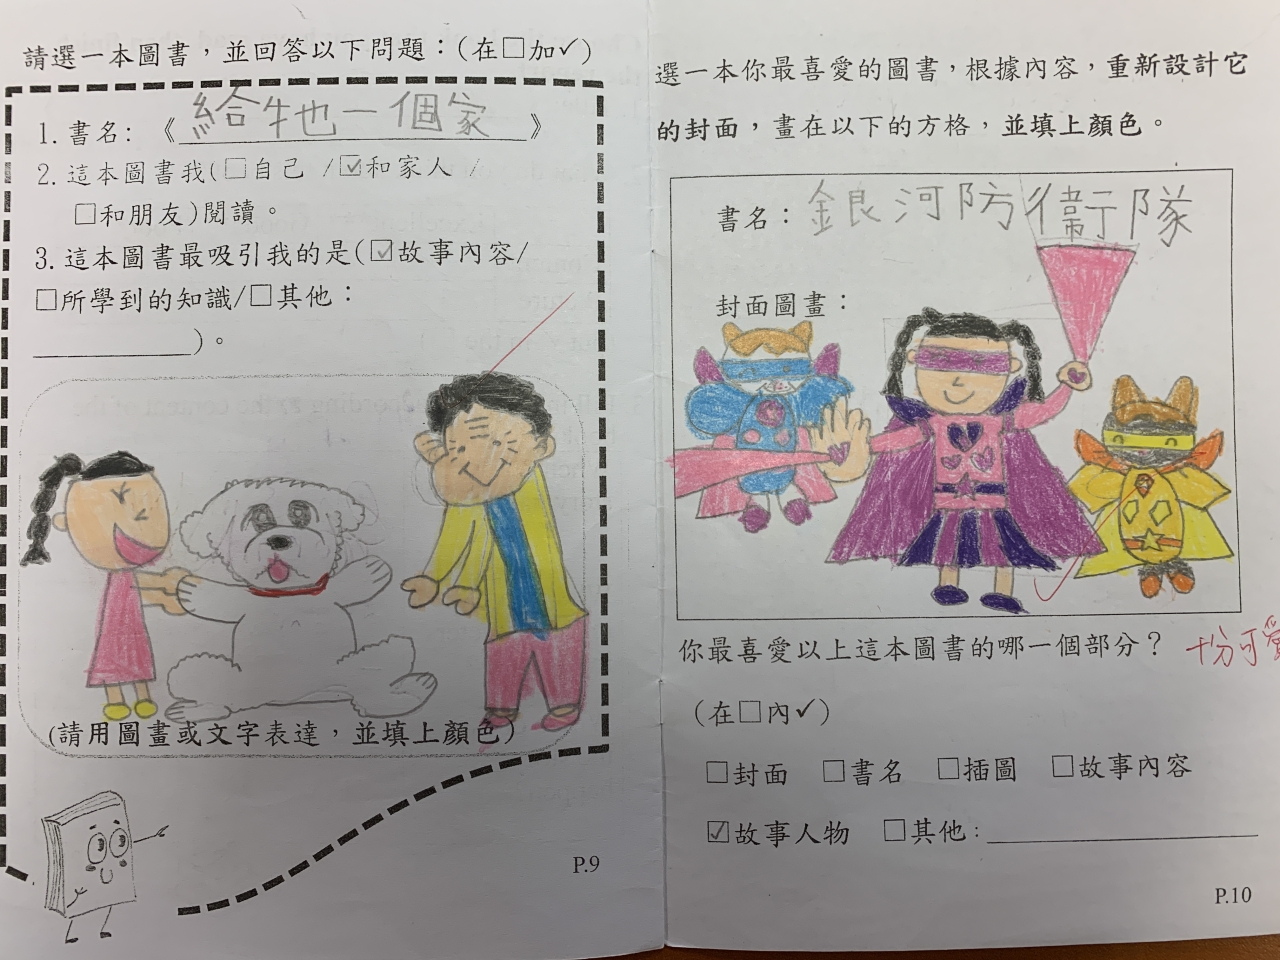 請選一本圖書，並回答以下問題：(在□加✓)
1. 書名：《給牠一個家》
2. 這本圖書我(□自己 /☑和家人 /
□和朋友)閱讀。
3. 這本圖書最吸引我的是(☑故事內容/
□所學到的知識/□其他：
____________)。
(請用圖畫或文字表達，並填上顏色)
P.9
選一本你最喜愛的圖書，根據內容，重新設計它
的封面，畫在以下的方格，並填上顏色。
書名：銀河防衛隊
封面圖畫：
你最喜愛以上這本圖書的哪一個部分？
十分可愛
(在□內✓)
□封面 □書名 □插圖 □故事內容
☑故事人物 □其他：____________________
P.10